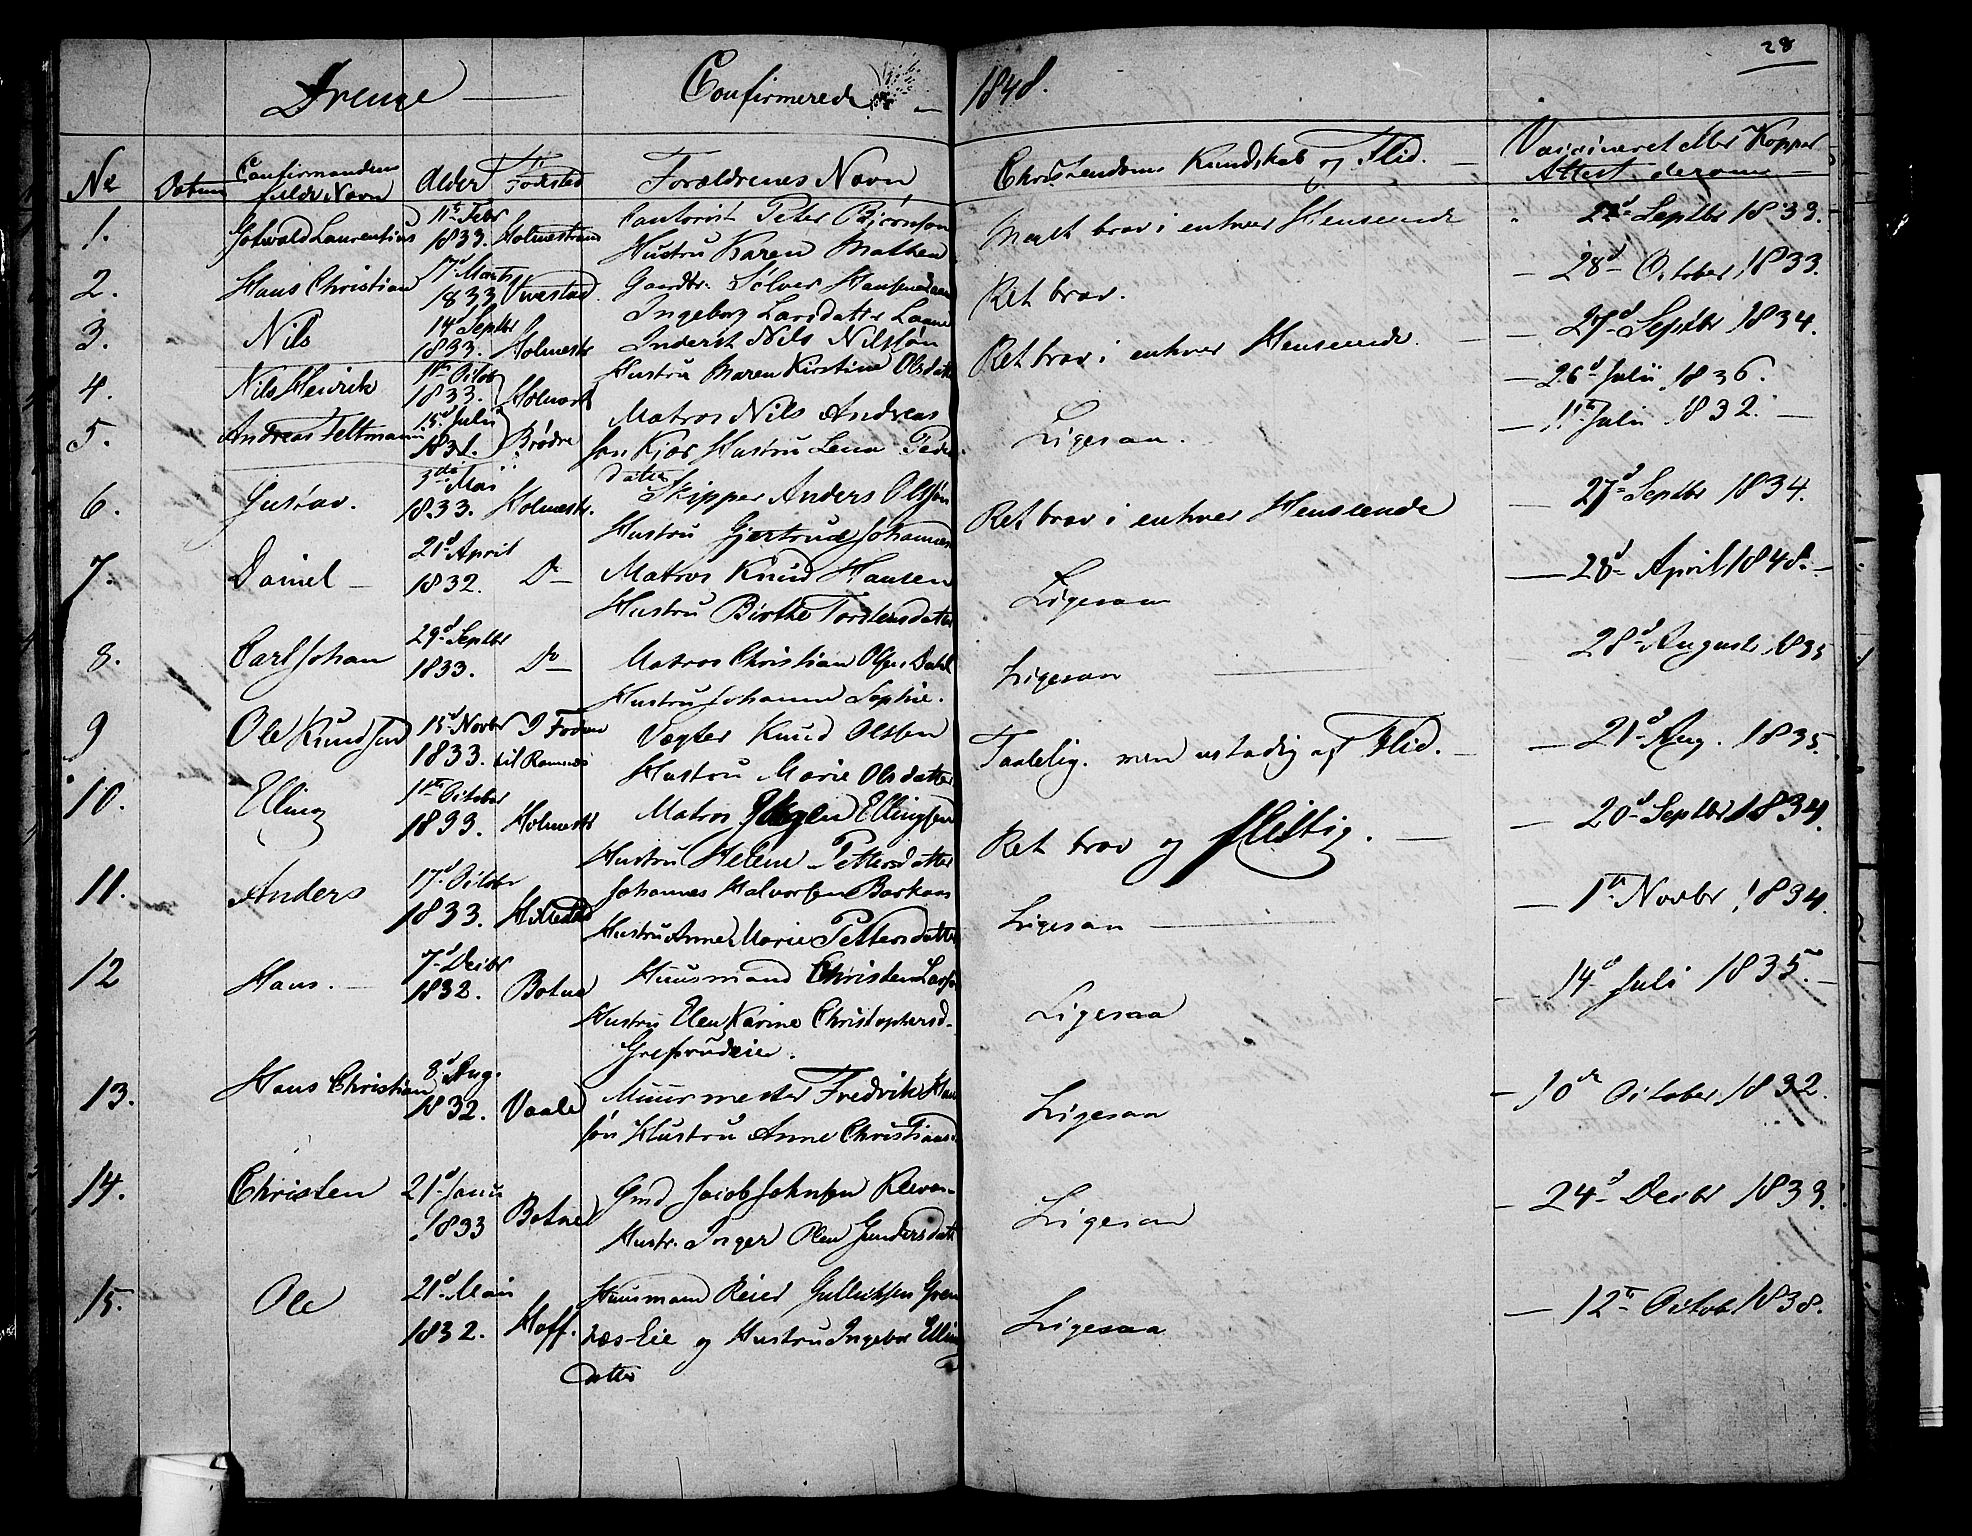 28
Drenge — Confirmerede — 1848.
No Datum Confirmandens fulde Navn Alder Födested Forældrenes Navn Christendoms Kundskab og Flid. — Vaccineret eller Kopper Attest derom —
1. Gotwald Laurentius 11te Febr 1833. Holmestrand Peter Bjørnson Hustru Karen Mathea Meget brav i enhver Henseende 22d Septbr 1833.
2. Hans Christian 17d Marts 1833 Sølver Hansen Ingeborg Larsdatter Ret brav. — 28d October 1833.
3. Nils 14d Septbr 1833. Holmestr Inderst Nils Nilssøn Hustru Maren Kirstine Olsdatt Ret brav i enhver Henseende. — 27d Septbr 1834.
4. Nils Henrik 1te Octob 1833. Holmest — 26d Julii 1836.
5. Andreas Feltmann 15d Julii 1831. Brødre Matros Nils Andreas
sen Kjær Hustru Lena Peders
datter Ligesaa. — 11te Julii 1832. —
6. Gustav. 3die Mai 1833. Holmestr. Skipper Anders Olssøn
Hustru Gjertrud Johannes Ret brav i enhver Henseende — 27d Septbr 1834.
7. Daniel — 21d April 1832. Do — Matros Knud Hansen
Hustru Birthe Torstensdatter Ligesaa — 28d April 1848. —
8. Carl Johan 29d Septbr 1833. Do — Matros Christian Olsen Dahl
Hustru Johanne Sophie. Ligesaa — 28d Augusti 1835
9 Ole Knudsen 15d Novbr 1833. til Ramnæs Vægter Knud Olssen
Hustru Marie Olsdatter Taalelig. men ustadig af Flid. — 21d Aug. 1835.
10. Elling 1te October 1833. Holmestr Matros Ellingsen
Hustru Helene Pettersdatter Ret brav og flittig. — 20d Septbr 1834.
11. Anders 17d October 1833. Hillestad Johannes Halvorsen
Hustru Anne Marie Pettersdatter Ligesaa — 1te Novbr 1834.
12 Hans. — 7d Decbr 1832. Botne Huusmand Christen Lars
Hustru Elen Karine Christophersd.
Ligesaa — 14d Juli 1835. —
13. Hans Christian 8d Aug. 1832. Vaale Muurmester Fredrik Han
søn Hustru Anne Christians Ligesaa — 10de October 1832.
14. Christen 21d Janu 1833 Botne Gmd Jacob Johnsen
Hustr. Inger Olea Gundersdatt Ligesaa — 24d Decbr 1833.
15. Ole 21d Mai 1832. Hoff. Huusmand Reier Gulliksen Gren
næs-Eie og Hustru Ingebor Ellings
datter Ligesaa — 12te Octob. 1838.